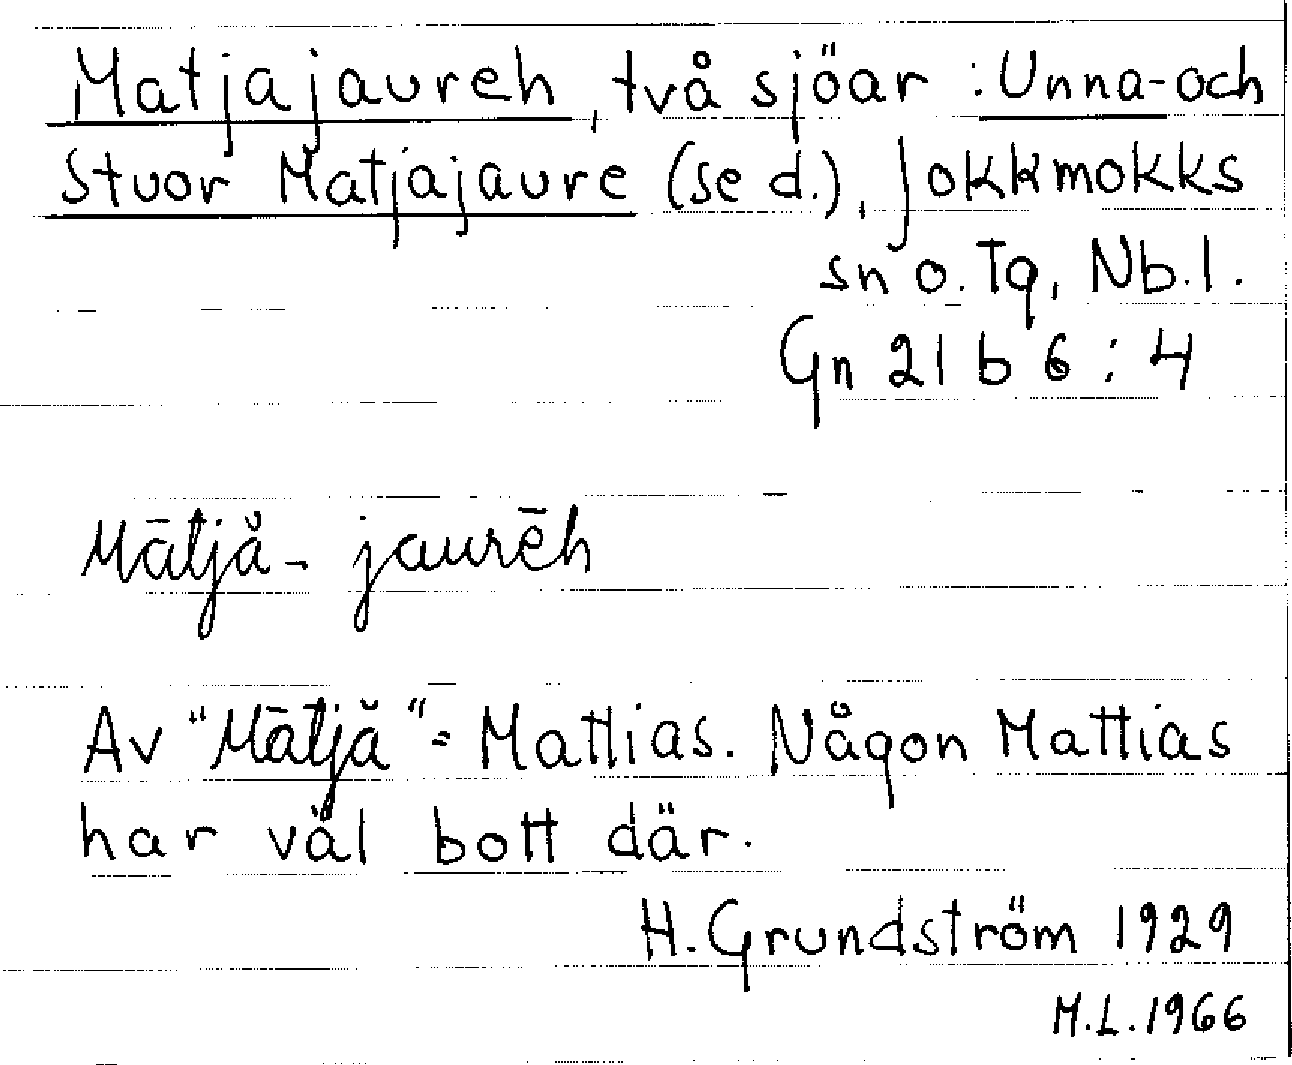 Matjajaureh, två sjöar : Unna- och
Stuor Matjajaure (se d.), Jokkmokks
sn o. Tg, Nb. l.
Gn 21 b 6 : 4
Mātjå̆- jaurēh
Av "Mātjå̆" = Mattias. Någon Mattias
har väl bott där.
H. Grundström 1929
M.L. 1966